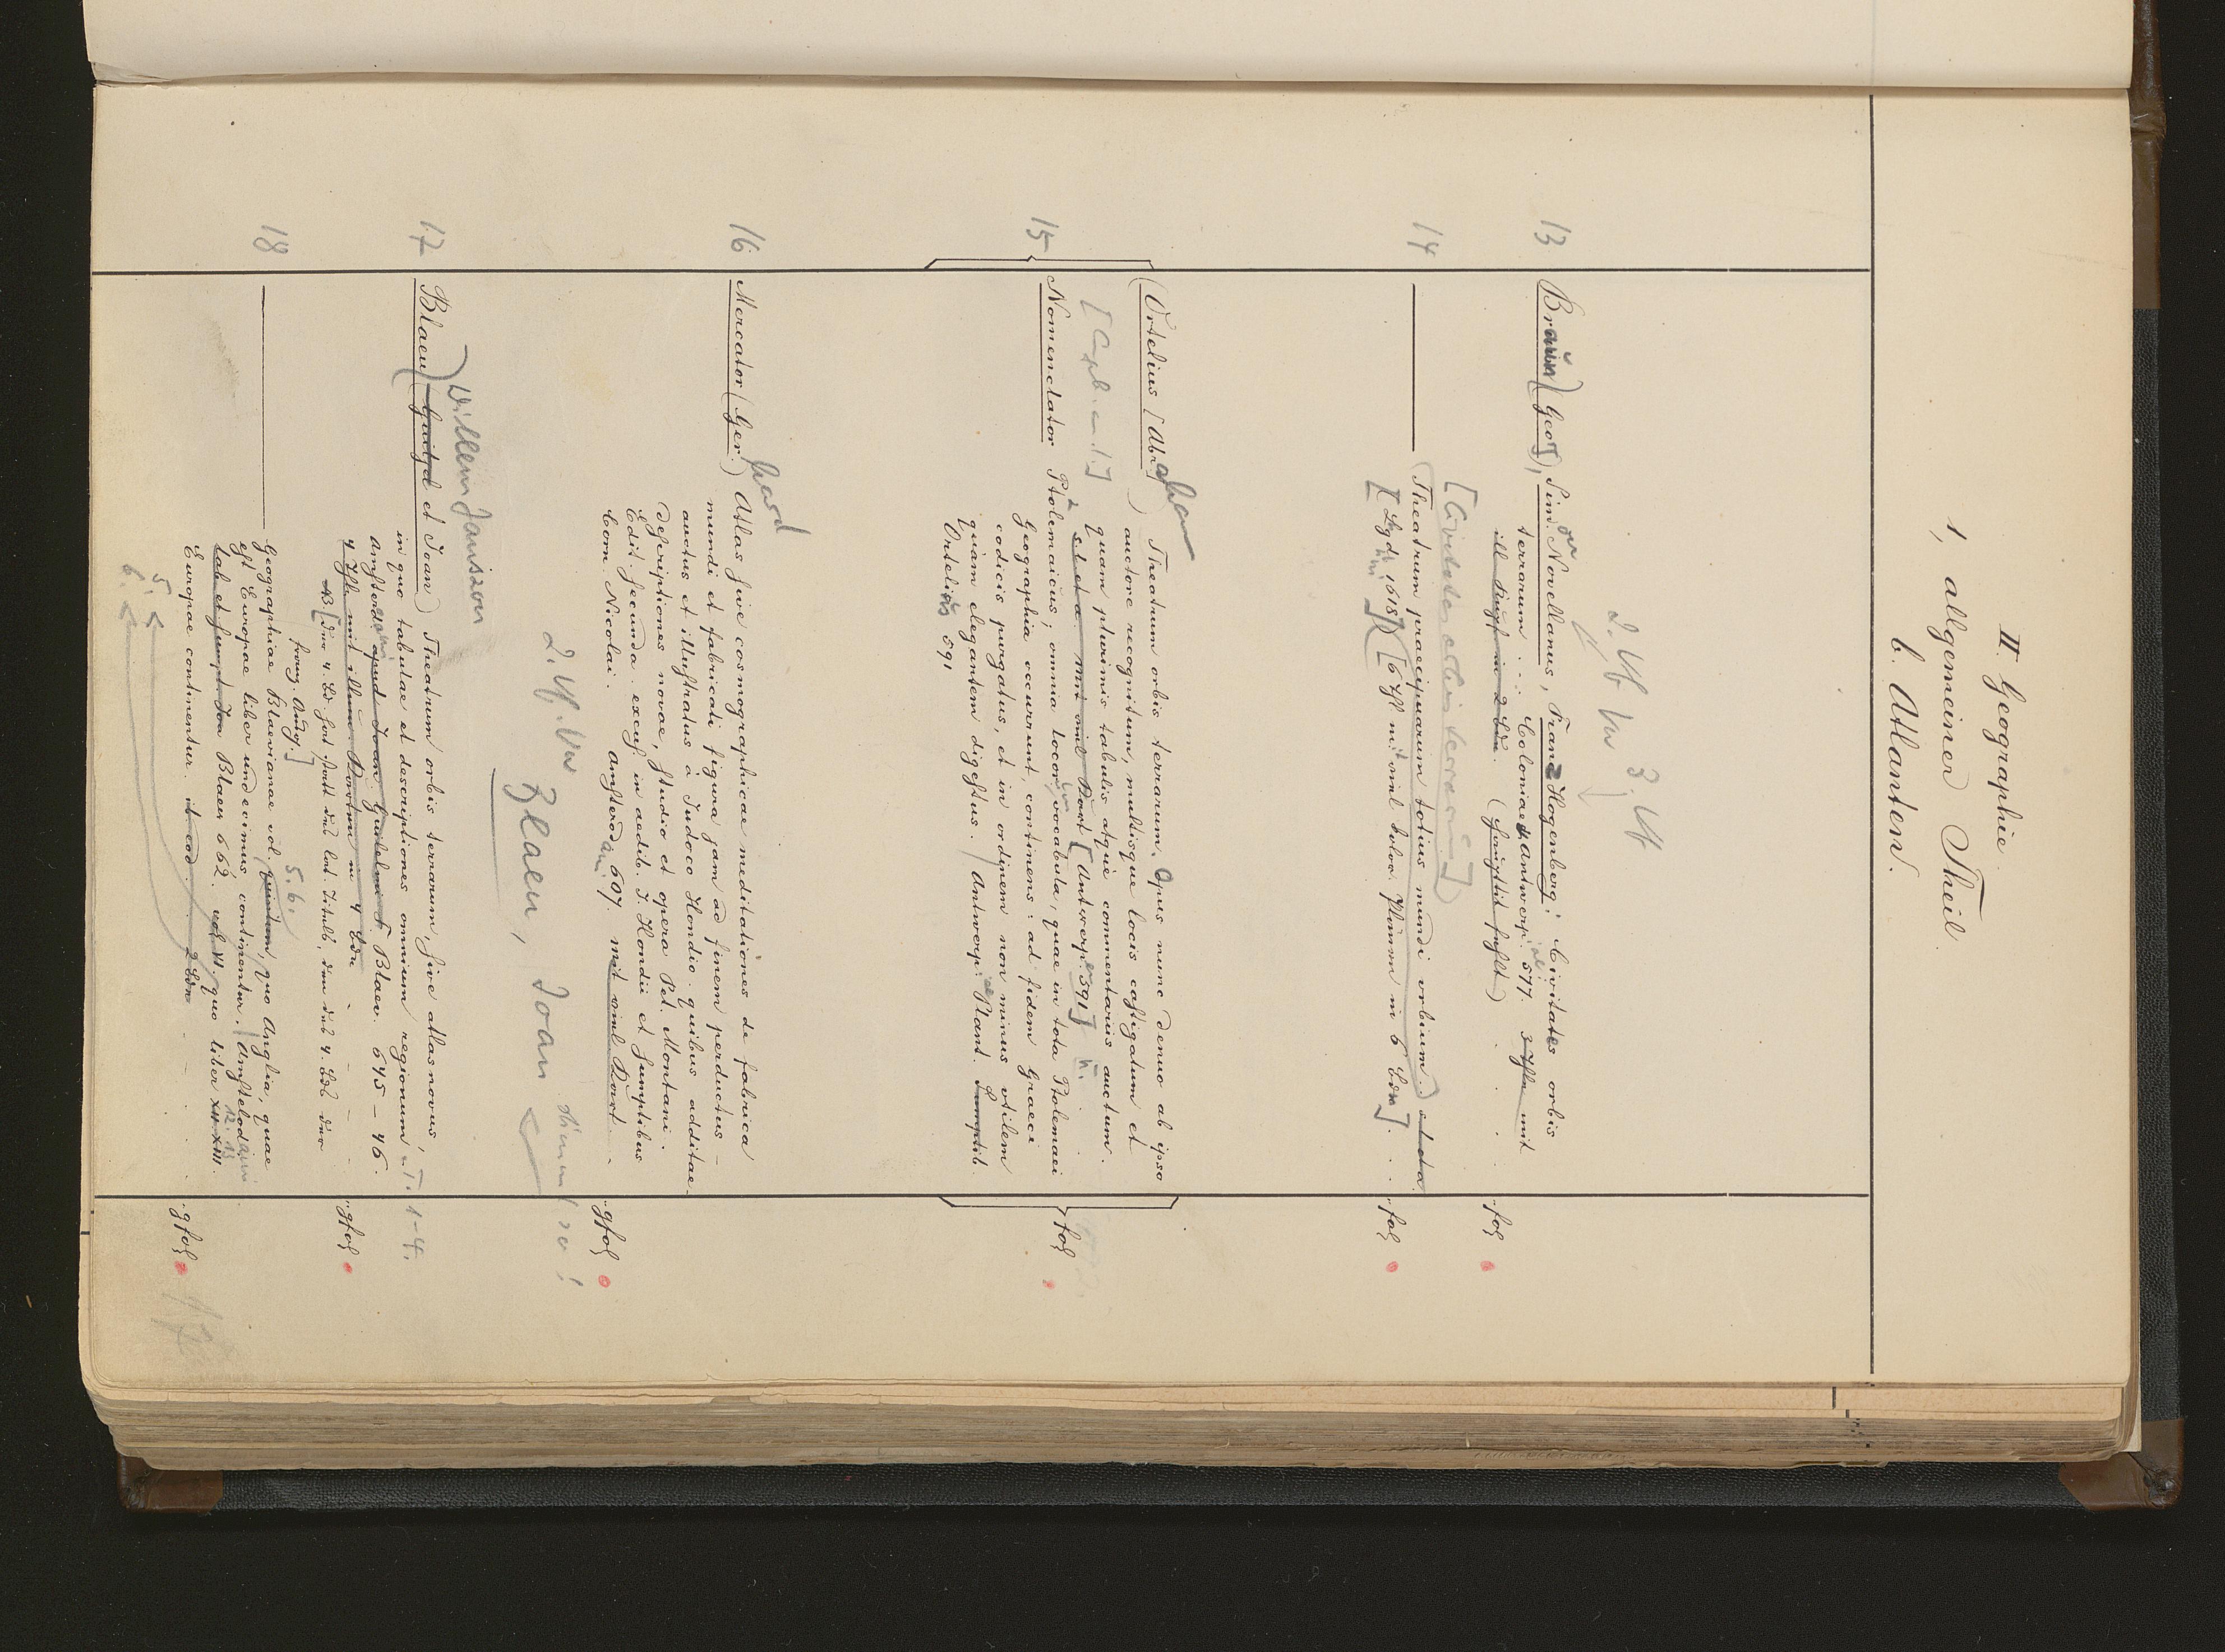 II. Geographie
1, allgemeiner Theil
b. Atlanten.
2. Vf
3. Vf
13
Braun (Georg), Simon Novellanus, Franz Hogenberg: Civitates orbis
terrarum . . . Coloniae & Antwerp. 577. 3 Thle mit
ill Kupf in 2 Bdn. (Haupttit fehlt)
fol
[Civitates orbis terrarum]
14
Theatrum praecipuarum totius mundi urbium.) et cta
[1618] [6 Thl mit viel color. Plänen in 6 Bdn].
fol
15
(Ortelius [Abraham]) Theatrum orbis terrarum. Opus nunc denuo ab ipso
auctore recognitum, multisque locis castigatum et
quam plurimis tabulis atque commentariis auctum.
s. l. et a. Mit viel Kart [Antwerp. 591]
Nomenclator Ptolemaicus; omnia locorum vocabula, quae in tota Ptolemaei
Geographia occurrunt, continens: ad fidem Graeci
codicis purgatus, et in ordinem non minus utilem
quàm elegantem digestus. Antwerp. Plant. Sumptib.
Ortelius 591
fol
16
Mercator (Gerhard) Atlas sive cosmographicae meditationes de fabrica
mundi et fabricati figura jam ad finem perductus
auctus et illustratus à Judoco Hondio. quibus additae
descriptiones novae, studio et opera Pet. Montani.
Edit. secunda. excus. in aedib. J. Hondii et sumptibus
Corn. Nicolai. Amsterodami. 607. mit viel Kart.
gfol
2. Vf.
Blaeu, Joan
Willem Janszon
17
Blaeu (Guitzel et Joan) Theatrum orbis terrarum, sive atlas novus,
in quo tabulae et descriptiones omnium regionum, T. 1-4.
Amsterd. apud Joan. Guilelmi F. Blaeu. 645-46.
4 Thle mit illum. Karten in 4 Bdn
[Der 4. Bd. hat statt des lat. Titels, den des 4. Bds der
franz. Ausg.]
gfol
5. 6.
18
Geographiae Blaevianae vol. quintum, quo Anglia, quae
est Europae liber undecimus, continentur. Amstelodami
lab. et sumpt Joa Blaeu 662. vol VI. quo liber XII XIII.
12. 13
Europae continentur. it eod. 2 Bde
gfol
5.
6.